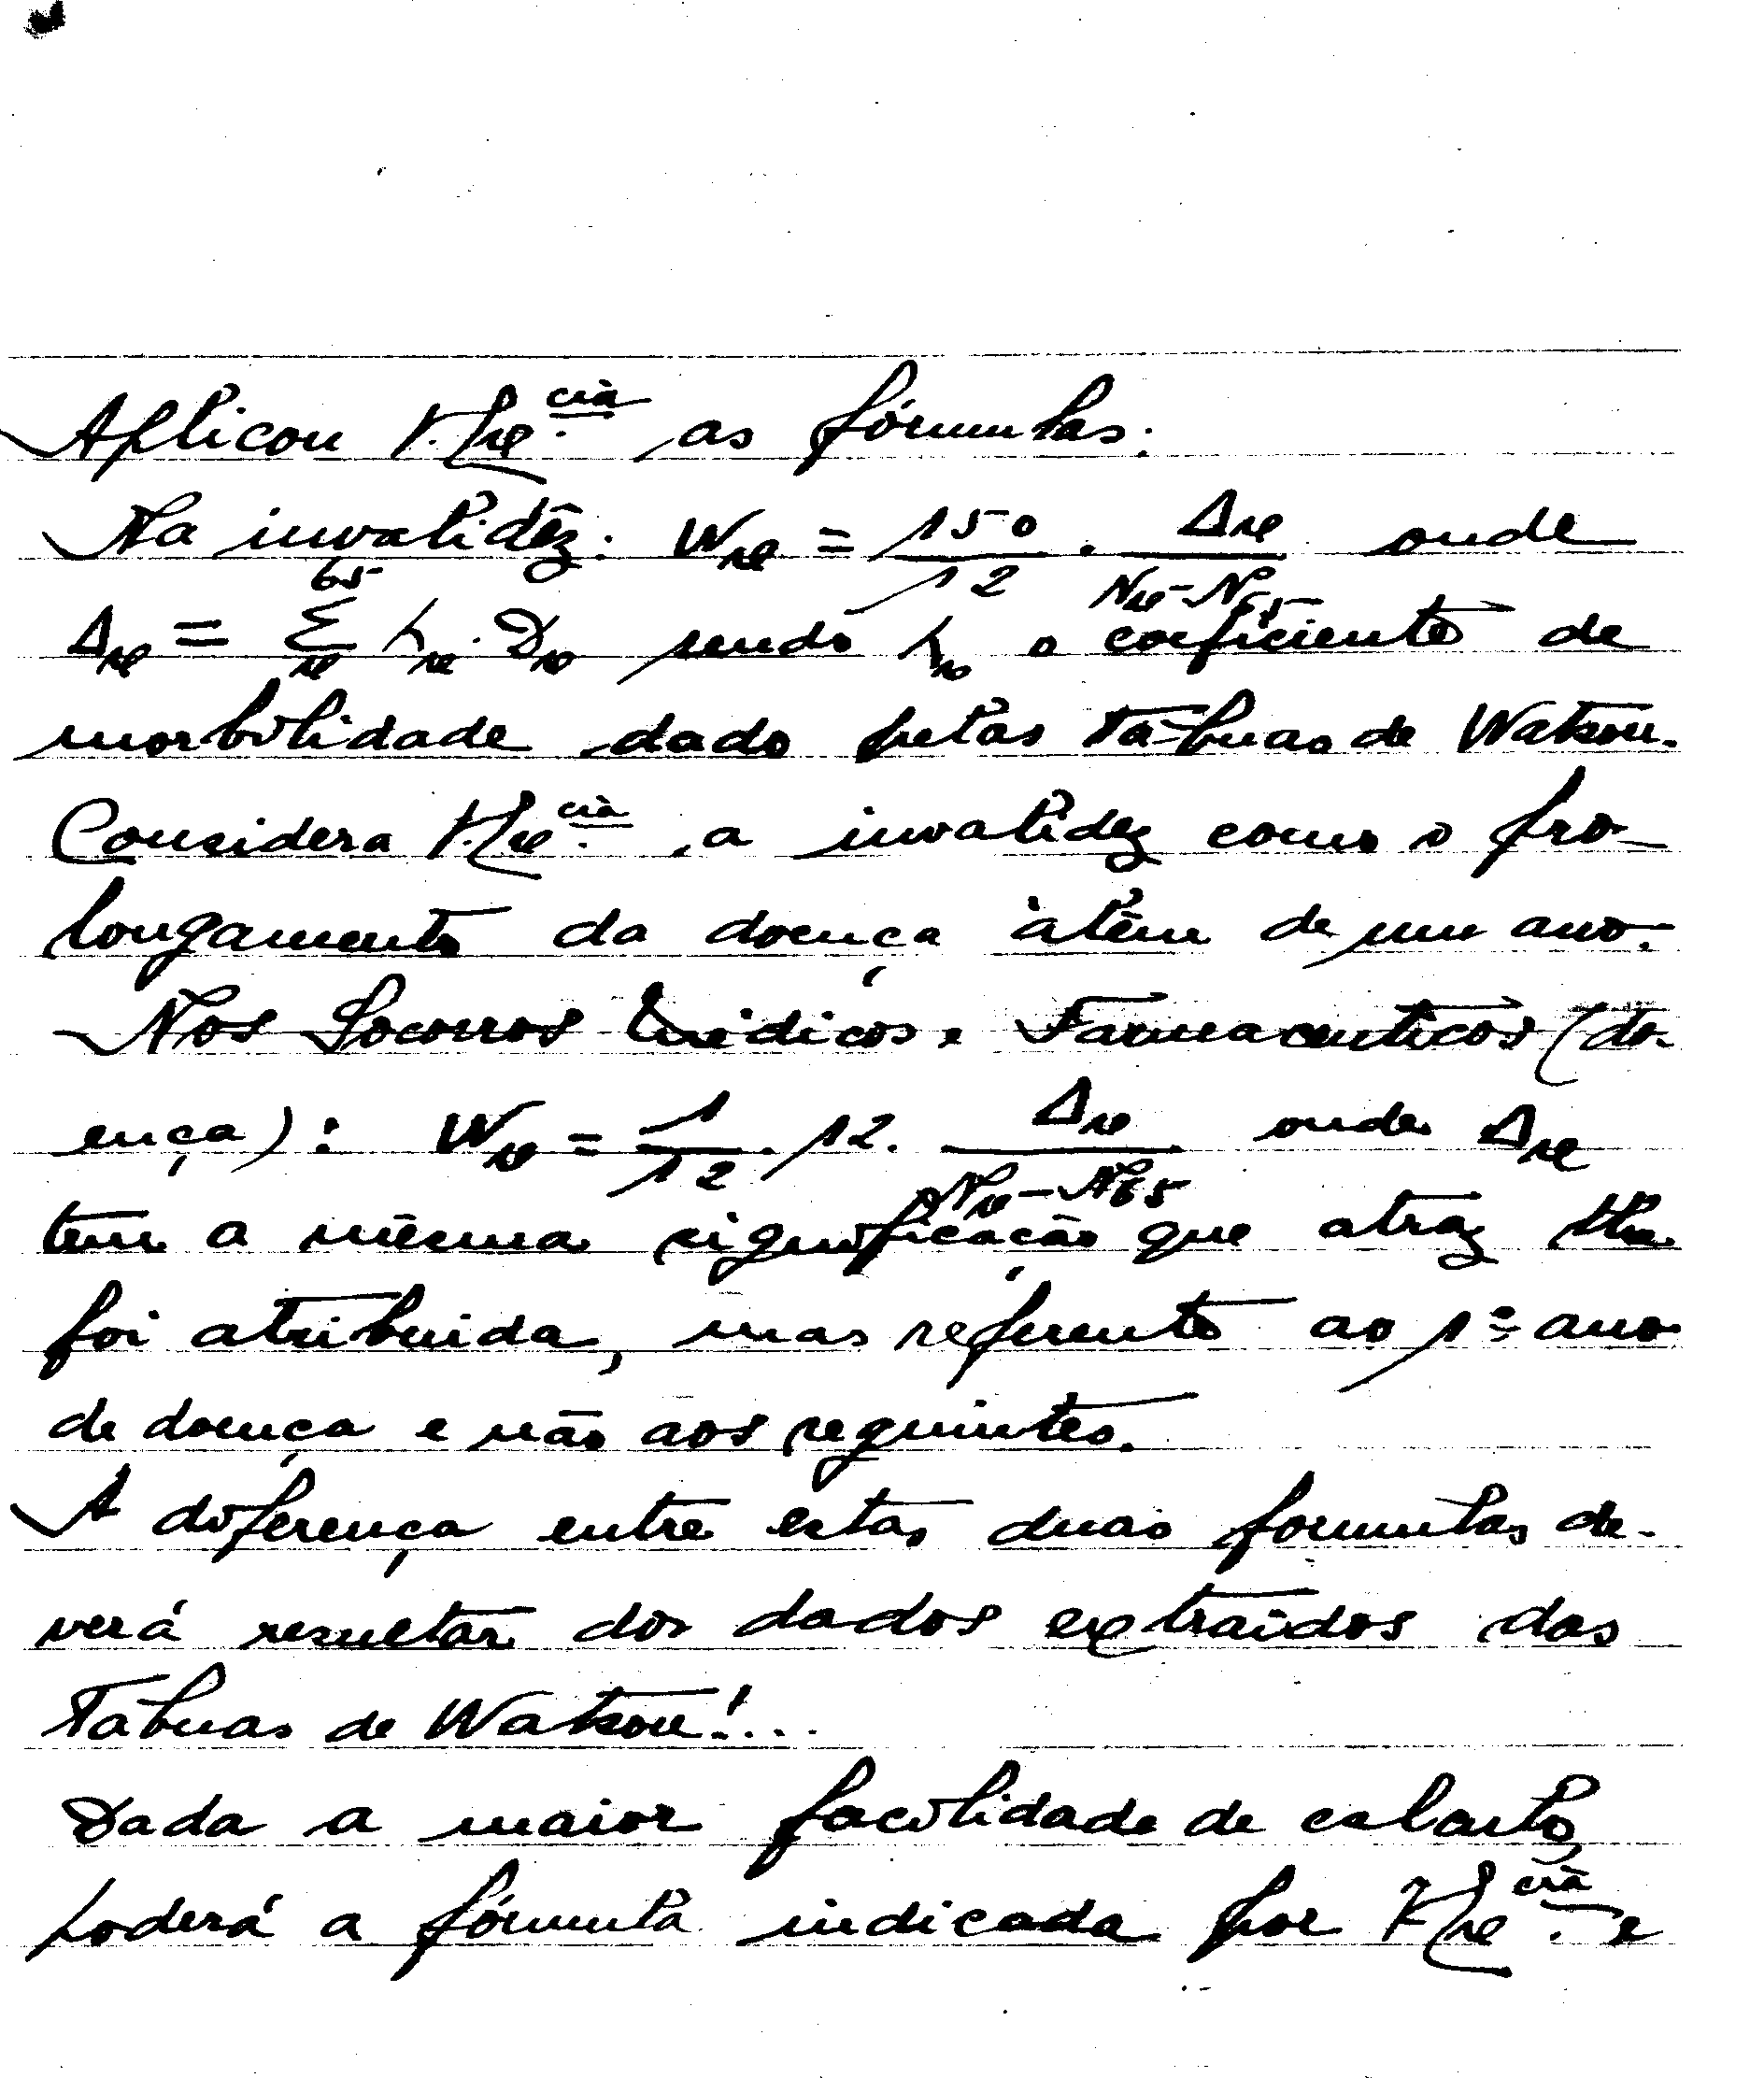 Aplicou V. Ex.cia as fórmulas:
Na invalidêz: Wx = 150/12 . Δx/(Nx - N65) onde
Δx = Σ(x, 65) hx . Dx sendo hx o coeficiente de
morbilidade dado pelas Tábuas de Watson.
Considera V. Ex.cia a invalidez como o pro-
longamento da doença àlêm de um ano.
Nos Socorros Médicos e Farmaceuticos (do-
ença): Wx = 1/12 . 12 . Δx/(Nx - N65) onde Δx
tem a mêsma significação que atraz lhe
foi atribuida, mas referente ao 1º ano
de doença e não aos seguintes.
A diferença entre estas duas formulas de-
verá resultar dos dados extraídos das
Tábuas de Watson!...
Dada a maior facilidade de calculo,
poderá a fórmula indicada por V. Ex.cia e